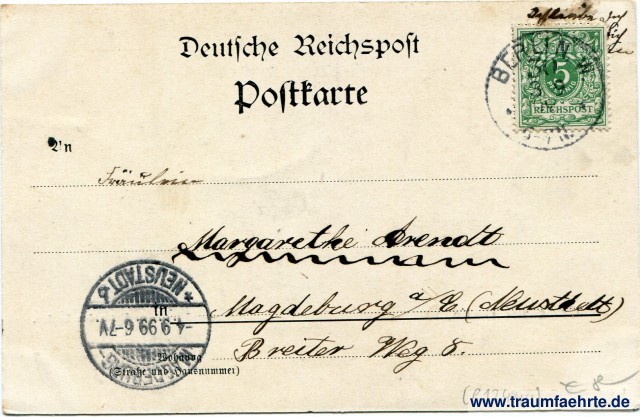 Deutsche Reichspost
Postkarte
BERLIN W.
5
REICHSPOST
5-7N.
An
Fräulein
Margarethe Arendt
in
Magdeburg a/E (Neustadt)
Breiter Weg 8.
Wohnung
(Straße und Hausnummer)
MAGDEBURG-
-4.9.99.6-7V.
* NEUSTADT b
www.traumfaehrte.de